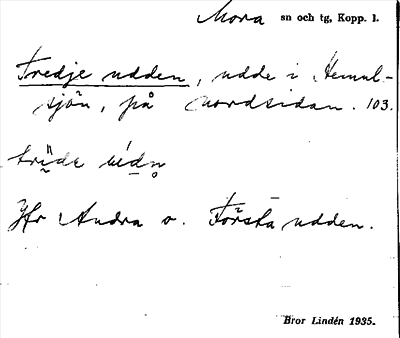 Mora sn och tg, Kopp. l.
Tredje udden, udde i Hemul-
sjön, på nordsidan. 103.
Jfr Andra o. Första udden.
Bror Lindén 1935.